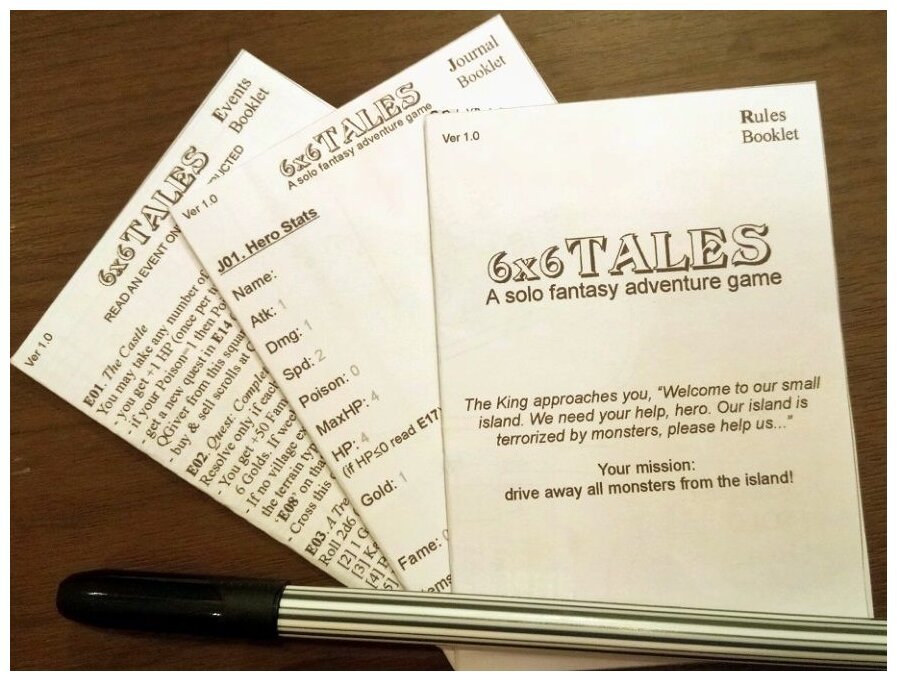 Events
Booklet
6x6 TALES
READ AN EVENT ON
UCTED
Ver 1.0
E01. The Castle
You may take any number of
- you get +1 HP (once per
- if your Poison=1 then
- get a new quest in E14
QGiver from this square
- buy & sell scrolls at
E02. Quest Comple
Resolve only if each
- You get +50 Fam
6 Golds. If
- If no village
the terrain
'E08' on
- Cross this
E03. A Tre
Roll 2d6
[2] 1 G
[3]
[4]
Journal
Booklet
6x6 TALES
A solo fantasy adventure game
Ver 1.0
J01. Hero Stats
Name:
Atk: 1
Dmg: 1
Spd: 2
Poison: 0
MaxHP: 4
HP: 4
(if HP≤0 read E17)
Gold: 1
Fame: 0
Rules
Booklet
Ver 1.0
6x6 TALES
A solo fantasy adventure game
The King approaches you, "Welcome to our small
island. We need your help, hero. Our island is
terrorized by monsters, please help us..."
Your mission:
drive away all monsters from the island!